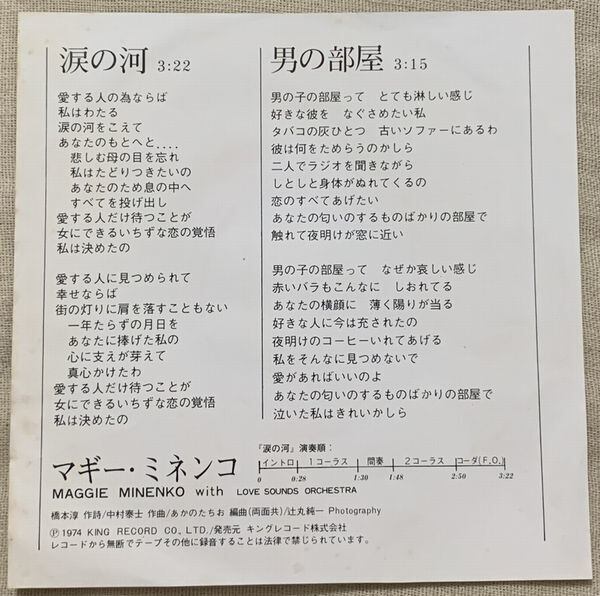 涙の河 3:22
愛する人の為ならば
私はわたる
涙の河をこえて
あなたのもとへと‥‥
悲しむ母の目を忘れ
私はたどりつきたいの
あなたのため息の中へ
すべてを投げ出し
愛する人だけ待つことが
女にできるいちずな恋の覚悟
私は決めたの
愛する人に見つめられて
幸せならば
街の灯りに肩を落すこともない
一年たらずの月日を
あなたに捧げた私の
心に支えが芽えて
真心かけたわ
愛する人だけ待つことが
女にできるいちずな恋の覚悟
私は決めたの
男の部屋 3:15
男の子の部屋って とても淋しい感じ
好きな彼を なぐさめたい私
タバコの灰ひとつ 古いソファーにあるわ
彼は何をためらうのかしら
二人でラジオを聞きながら
しとしと身体がぬれてくるの
恋のすべてあげたい
あなたの匂いのするものばかりの部屋で
触れて夜明けが窓に近い
男の子の部屋って なぜか哀しい感じ
赤いバラもこんなに しおれてる
あなたの横顔に 薄く陽りが当る
好きな人に今は充されたの
夜明けのコーヒーいれてあげる
私をそんなに見つめないで
愛があればいいのよ
あなたの匂いのするものばかりの部屋で
泣いた私はきれいかしら
マギー・ミネンコ
MAGGIE MINENKO with LOVE SOUNDS ORCHESTRA
「涙の河」演奏順:
イントロ 1コーラス 間奏 2コーラス コーダ(F.O.)
0 0:28 1:30 1:48 2:50 3:22
橋本淳 作詩/中村泰士 作曲/あかのたちお 編曲(両面共)/辻丸純一 Photography
Ⓟ1974 KING RECORD CO., LTD./発売元 キングレコード株式会社
レコードから無断でテープその他に録音することは法律で禁じられています。